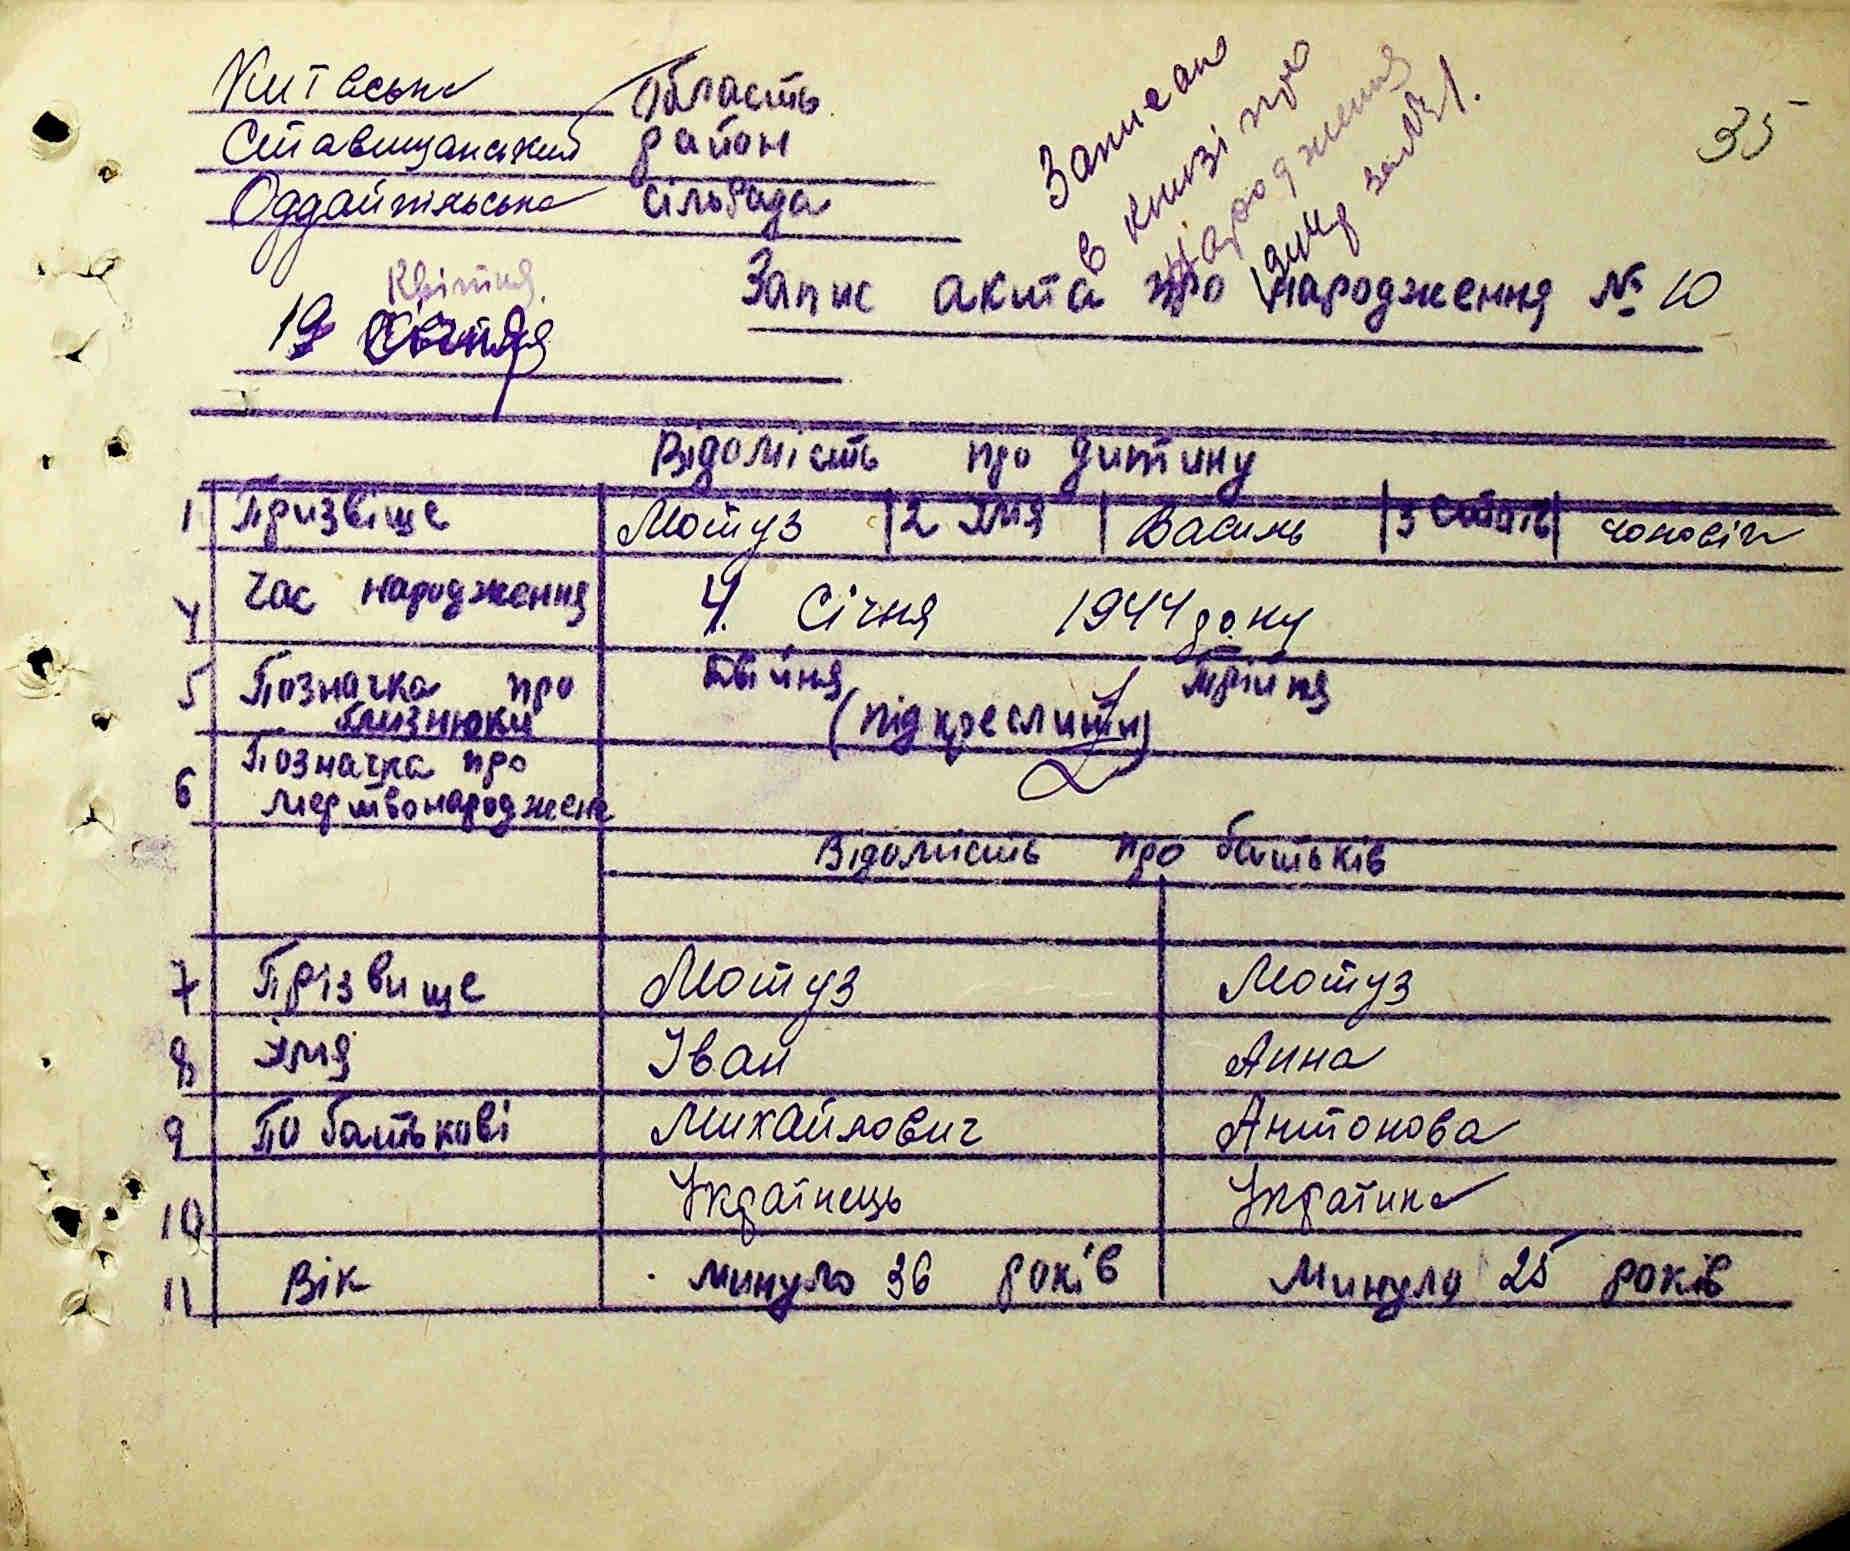 Київська область
Ставищанський район
Оддайпільська сільрада
35
Записано
в книзі про
народження
за №31.
Квітня
19
Запис акта про народження № 10
Відомість про дитину
1 Призвіще Мотуз 2 Імя Василь 3 Стать чоновіч
4 Час народження 4. Січня 1944 року
5 Позначка про близнюки двійня трійня
(підкреслити)
6 Позначка про
мертвонароджене
Відомість про батьків
7 Прізвище Мотуз Мотуз
8 Імя Іван Анна
9 По батькові Михайлович Антонова
10 Українець Українка
11 Вік минуло 36 років Минуло 25 років